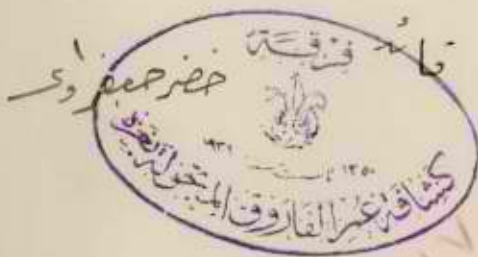 قائد
فرقة
خضر جعفراوي
١٣٥٠ تأسست سنة ١٩٣١
كشافة عمر الفاروق المتجولة بغزة